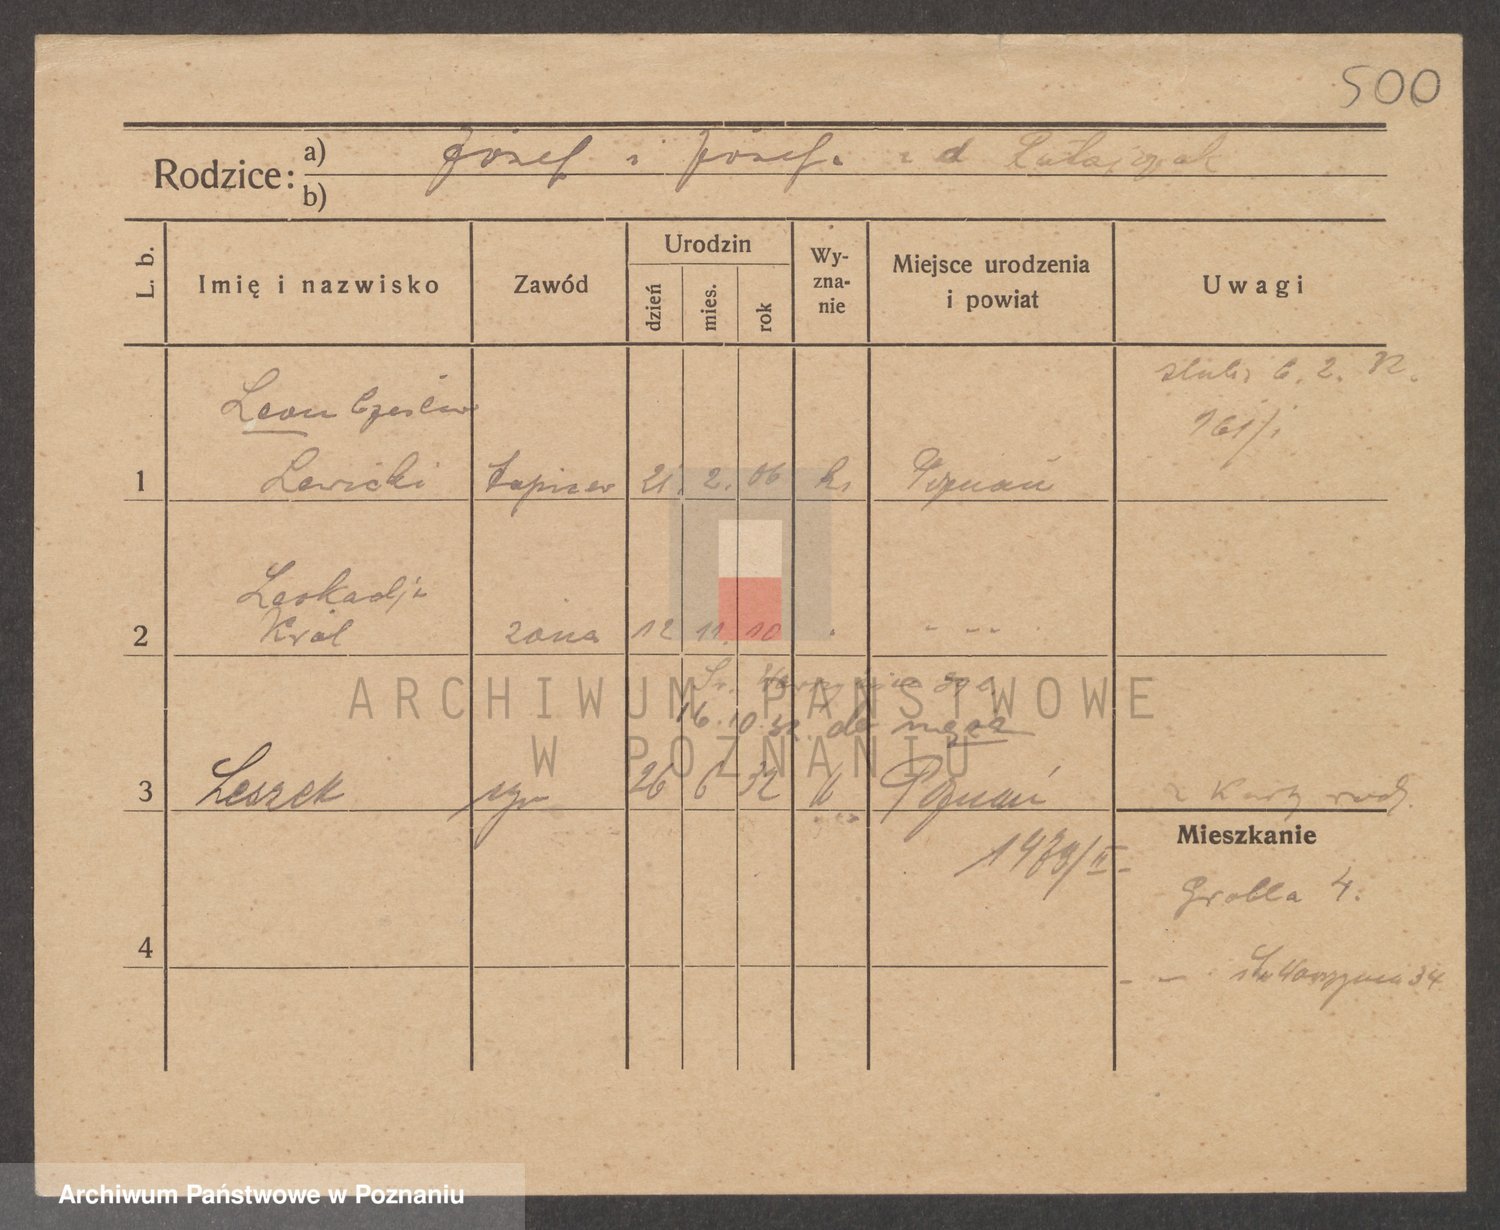 500
Rodzice: a) Józef i Józefa z d Ratajczak
b)
L. b. Imię i nazwisko Zawód Urodzin dzień mies. rok Wy-zna-nie Miejsce urodzenia i powiat Uwagi
ślub 6. 2. 32.
161/i
Leon Czesław
1 Lewicki tapicer 21. 2. 06 k. Poznań
Leokadja
2 Król żona 12 11. 10 " - --
16. 10. 32. do męża
3 Leszek syn 26 6 32 k Poznań z karty rodz.
Mieszkanie
Grobla 4.
4
- - 34
ARCHIWUM PAŃSTWOWE
W POZNANIU
Archiwum Państwowe w Poznaniu